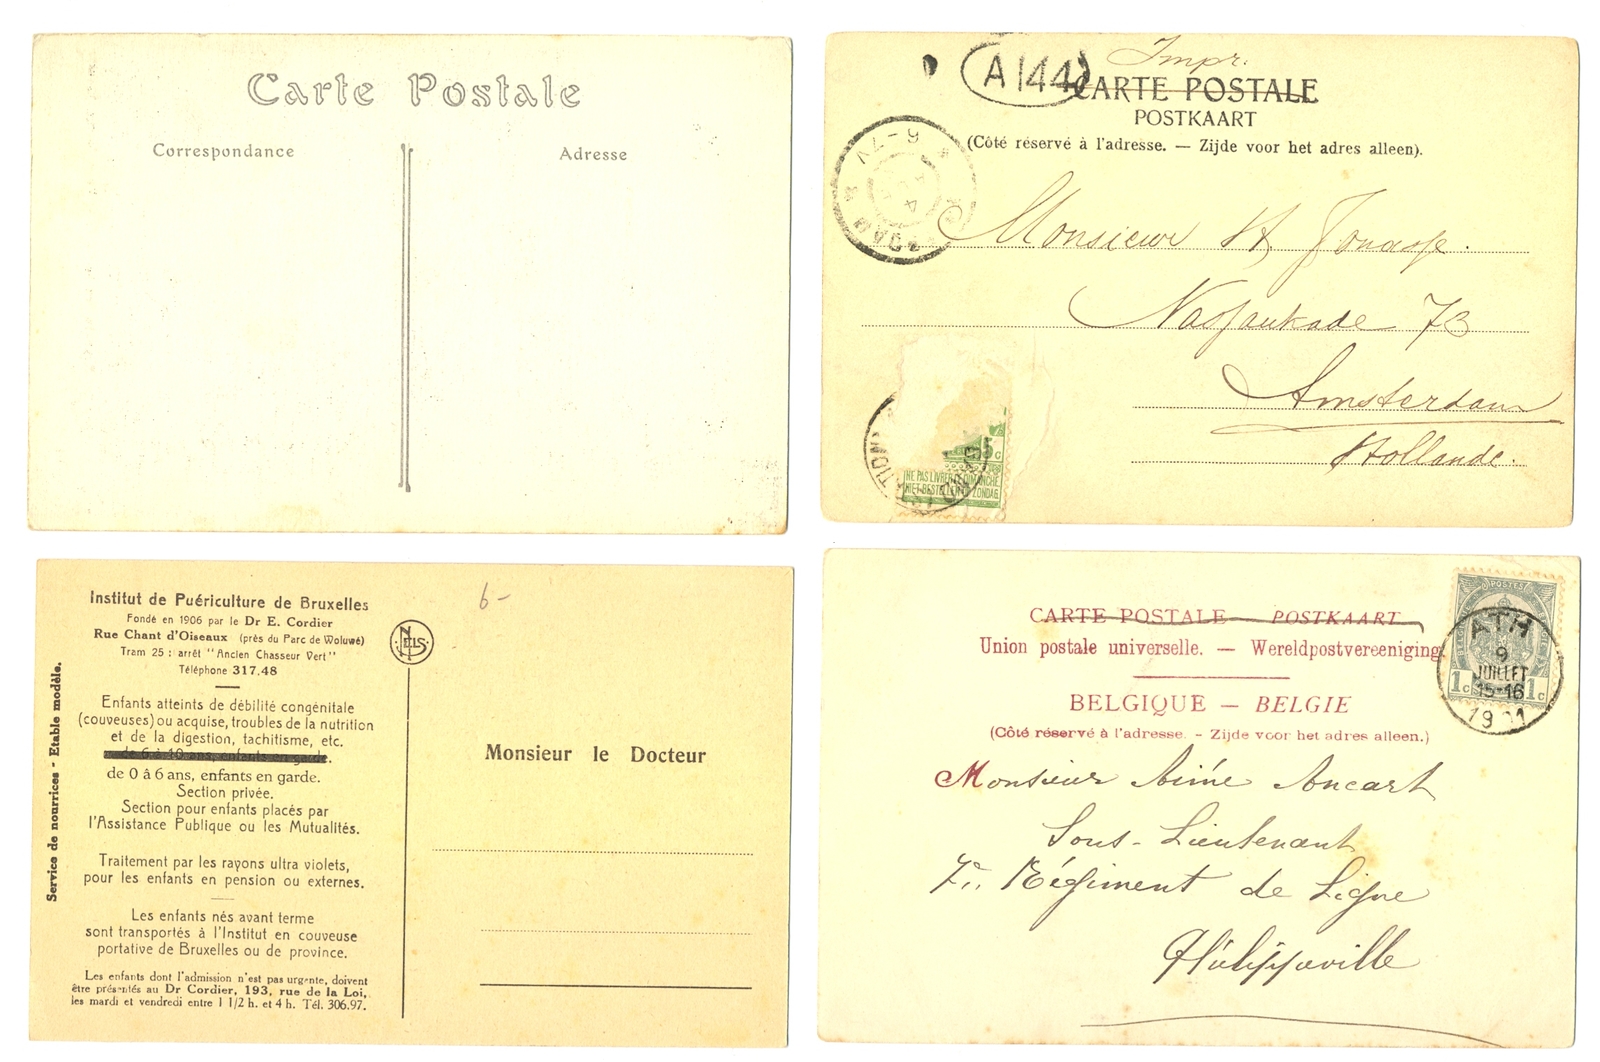 Carte Postale
Correspondance
Adresse
Impr.
A 144
CARTE POSTALE
POSTKAART
(Côté réservé à l'adresse. — Zijde voor het adres alleen).
6-7V
Monsieur
Nassaukade 73
Amsterdam
Hollande.
5 c
NE PAS LIVRER LE DIMANCHE
NIET BESTELLEN OP ZONDAG
Institut de Puériculture de Bruxelles
Fondé en 1906 par le Dr E. Cordier
Rue Chant d'Oiseaux (près du Parc de Woluwé)
Tram 25 : arrêt "Ancien Chasseur Vert"
Téléphone 317.48
Enfants atteints de débilité congénitale
(couveuses) ou acquise, troubles de la nutrition
et de la digestion, tachitisme, etc.
de 6 à 10 ans, enfants en garde.
de 0 à 6 ans, enfants en garde.
Section privée.
Section pour enfants placés par
l'Assistance Publique ou les Mutualités.
Traitement par les rayons ultra violets,
pour les enfants en pension ou externes.
Les enfants nés avant terme
sont transportés à l'Institut en couveuse
portative de Bruxelles ou de province.
Les enfants dont l'admission n'est pas urgente, doivent
être présentés au Dr Cordier, 193, rue de la Loi,
les mardi et vendredi entre 1 1/2 h. et 4 h. Tél. 306.97.
Service de nourrices - Etable modèle.
NELS
6-
Monsieur le Docteur
CARTE POSTALE — POSTKAART
Union postale universelle. — Wereldpostvereeniging
BELGIQUE — BELGIE
(Côté réservé à l'adresse. - Zijde voor het adres alleen.)
POSTES
1c 1c
ATH
9
JUILLET
15-16
Monsieur Aimé Ancart
Sous-Lieutenant
7e Régiment de Ligne
Philippeville